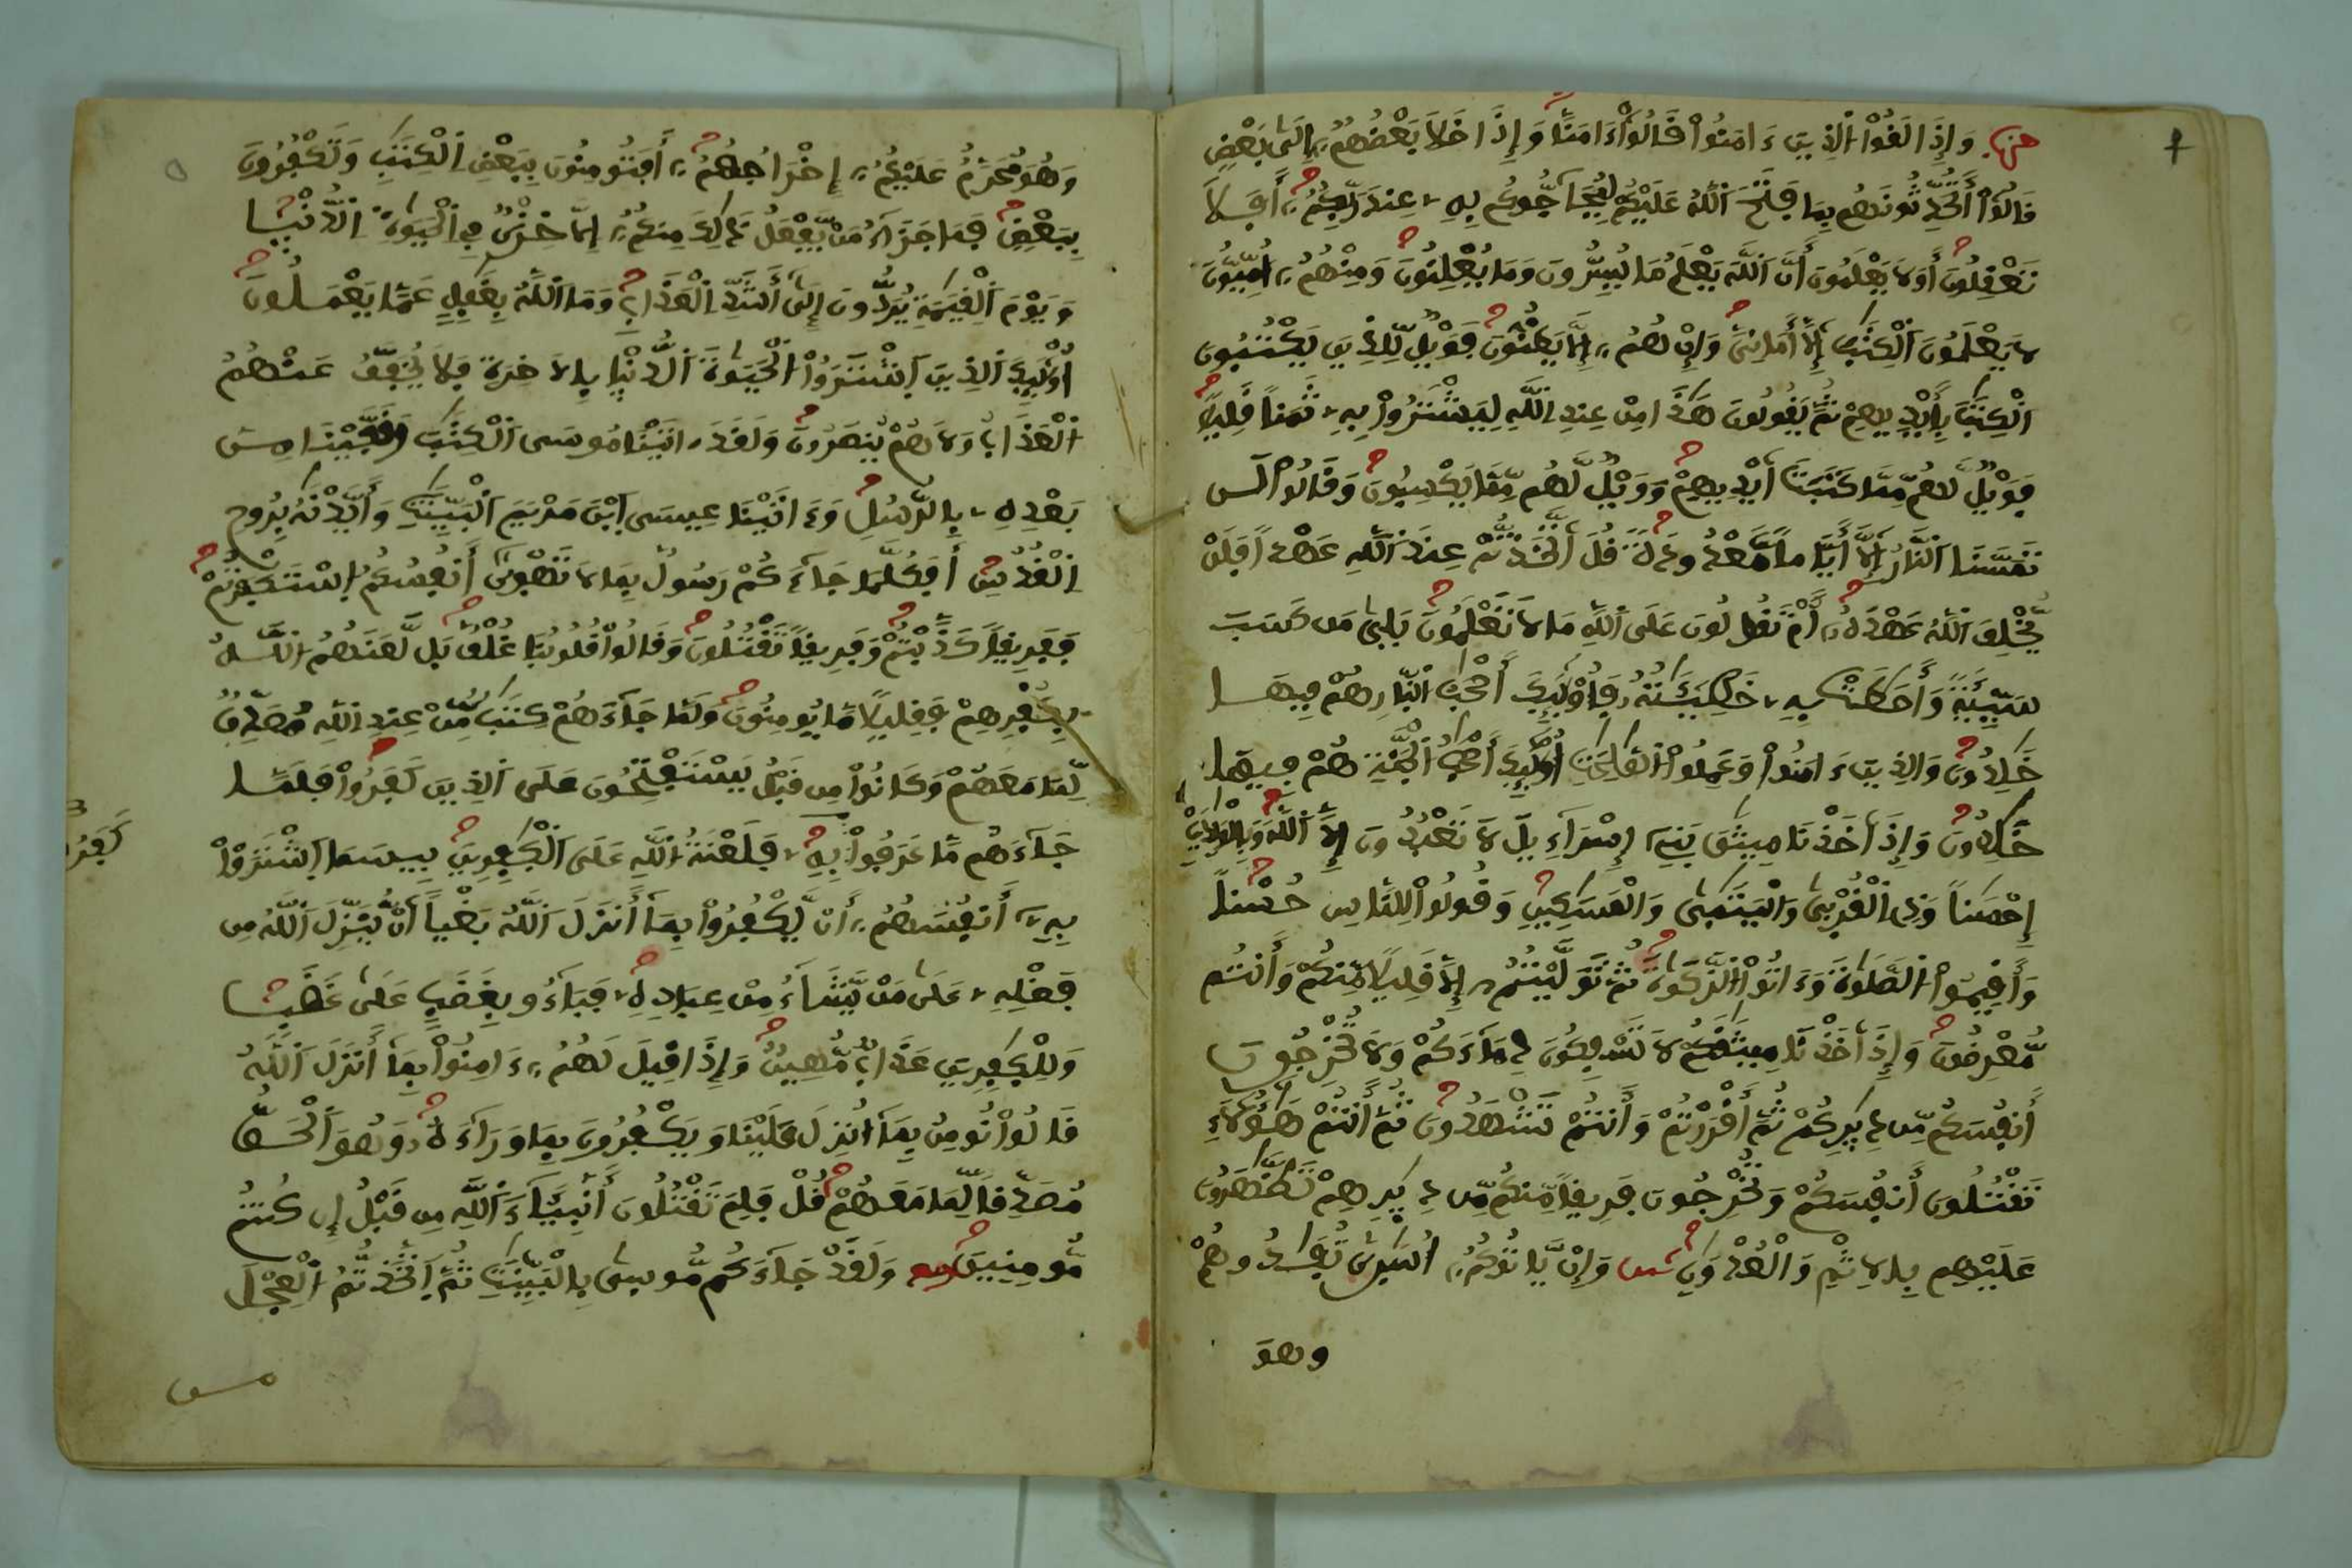 حزب وَإِذَا لَقُواْ الذِينَ ءَامَنُواْ قَالُواْ ءَامَنَّا وَإِذَا خَلاَ بَعْضُهُمُۥٓ إِلَىٰ بَعْضٖ
قَالُوٓاْ أَتُحَدِّثُونَهُم بِمَا فَتَحَ اَللَّهُ عَلَيْكُمْ لِيُحَآجُّوكُم بِهِۦ عِندَ رَبِّكُمُۥٓ أَفَلاَ
تَعْقِلُونَ أَوَلاَ يَعْلَمُونَ أَنَّ اَللَّهَ يَعْلَمُ مَا يُسِرُّونَ وَمَا يُعْلِنُونَ وَمِنْهُمُۥٓ أُمِّيُّونَ
لاَ يَعْلَمُونَ اَلْكِتَٰبَ إِلَّآ أَمَانِيَّ وَإِنْ هُمُۥٓ إِلاَّ يَظُنُّونَ فَوَيْلٞ لِّلذِينَ يَكْتُبُونَ
اَلْكِتَٰبَ بِأَيْدِيهِمْ ثُمَّ يَقُولُونَ هَٰذَا مِنْ عِندِ اِللَّهِ لِيَشْتَرُواْ بِهِۦ ثَمَناٗ قَلِيلاٗ
فَوَيْلٞ لَّهُم مِّمَّا كَتَبَتَ اَيْدِيهِمْ وَوَيْلٞ لَّهُم مِّمَّا يَكْسِبُونَ وَقَالُواْ لَن
تَمَسَّنَا اَلنَّارُ إِلَّآ أَيَّاماٗ مَّعْدُودَةٗ قُلَ اَتَّخَذتُّمْ عِندَ اَللَّهِ عَهْداٗ فَلَنْ
يُّخْلِفَ اَللَّهُ عَهْدَهُۥٓ أَمْ تَقُولُونَ عَلَى اَللَّهِ مَا لاَ تَعْلَمُونَ بَلَىٰ مَن كَسَبَ
سَيِّئَةٗ وَأَحَٰطَتْ بِهِۦ خَطِيٓـَٰٔتُهُۥ فَأُوْلَٰٓئِكَ أَصْحَٰبُ اُلنَّارِ هُمْ فِيهَا
خَٰلِدُونَ وَالذِينَ ءَامَنُواْ وَعَمِلُواْ اُلصَّٰلِحَٰتِ أُوْلَٰٓئِكَ أَصْحَٰبُ اُلْجَنَّةِ هُمْ فِيهَا
خَٰلِدُونَ وَإِذَ اَخَذْنَا مِيثَٰقَ بَنِيٓ إِسْرَآءِيلَ لاَ تَعْبُدُونَ إِلاَّ اَللَّهَ وَبِالْوَٰلِدَيْنِ
إِحْسَٰناٗ وَذِي اِلْقُرْبَىٰ وَالْيَتَٰمَىٰ وَالْمَسَٰكِينِ وَقُولُواْ لِلنَّاسِ حُسْناٗ
وَأَقِيمُواْ اُلصَّلَوٰةَ وَءَاتُواْ اُلزَّكَوٰةَ ثُمَّ تَوَلَّيْتُمُۥٓ إِلاَّ قَلِيلاٗ مِّنكُمْ وَأَنتُم
مُّعْرِضُونَ وَإِذَ اَخَذْنَا مِيثَٰقَكُمْ لاَ تَسْفِكُونَ دِمَآءَكُمْ وَلاَ تُخْرِجُونَ
أَنفُسَكُم مِّن دِيَٰرِكُمْ ثُمَّ أَقْرَرْتُمْ وَأَنتُمْ تَشْهَدُونَ ثُمَّ أَنتُمْ هَٰٓؤُلَآءِ
تَقْتُلُونَ أَنفُسَكُمْ وَتُخْرِجُونَ فَرِيقاٗ مِّنكُم مِّن دِيَٰرِهِمْ تَظَّٰهَرُونَ
عَلَيْهِم بِالِاثْمِ وَالْعُدْوَٰنِ ثمن وَإِنْ يَّاتُوكُمُۥٓ أُسَٰرَىٰ تُفَٰدُوهُمْ
وهوَ
وَهُوَ مُحَرَّمٌ عَلَيْكُمُۥٓ إِخْرَاجُهُمُۥٓ أَفَتُومِنُونَ بِبَعْضِ اِلْكِتَٰبِ وَتَكْفُرُونَ
بِبَعْضٖ فَمَا جَزَآءُ مَنْ يَّفْعَلُ ذَٰلِكَ مِنكُمُۥٓ إِلاَّ خِزْيٞ فِي اِلْحَيَوٰةِ اِلدُّنْيا
وَيَوْمَ اَلْقِيَٰمَةِ يُرَدُّونَ إِلَىٰٓ أَشَدِّ اِلْعَذَابِ وَمَا اَللَّهُ بِغَٰفِلٍ عَمَّا يَعْمَلُونَ
أُوْلَٰٓئِكَ اَلذِينَ اَشْتَرَوُاْ اُلْحَيَوٰةَ اَلدُّنْيا بِالَاخِرَةِ فَلاَ يُخَفَّفُ عَنْهُمُ
اُلْعَذَابُ وَلاَ هُمْ يُنصَرُونَ وَلَقَدَ اٰتَيْنَا مُوسَى اَلْكِتَٰبَ وَقَفَّيْنَا مِنۢ
بَعْدِهِۦ بِالرُّسُلِ وَءَاتَيْنَا عِيسَى اَبْنَ مَرْيَمَ اَلْبَيِّنَٰتِ وَأَيَّدْنَٰهُ بِرُوحِ
اِلْقُدُسِ أَفَكُلَّمَا جَآءَكُمْ رَسُولُۢ بِمَا لاَ تَهْوَىٰٓ أَنفُسُكُمُ اُسْتَكْبَرْتُمْ
فَفَرِيقاٗ كَذَّبْتُمْ وَفَرِيقاٗ تَقْتُلُونَ وَقَالُواْ قُلُوبُنَا غُلْفُۢ بَل لَّعَنَهُمُ اُللَّهُ
بِكُفْرِهِمْ فَقَلِيلاٗ مَّا يُومِنُونَ وَلَمَّا جَآءَهُمْ كِتَٰبٞ مِّنْ عِندِ اِللَّهِ مُصَدِّقٞ
لِّمَا مَعَهُمْ وَكَانُواْ مِن قَبْلُ يَسْتَفْتِحُونَ عَلَى اَلذِينَ كَفَرُواْ فَلَمَّا
جَآءَهُم مَّا عَرَفُواْ بِهِۦ فَلَعْنَةُ اُللَّهِ عَلَى اَلْكَٰفِرِينَ بِيسَمَا اَشْتَرَوْاْ
بِهِۦٓ أَنفُسَهُمُۥٓ أَنْ يَّكْفُرُواْ بِمَآ أَنزَلَ اَللَّهُ بَغْياً اَنْ يُّنَزِّلَ اَللَّهُ مِن
فَضْلِهِۦ عَلَىٰ مَنْ يَّشَآءُ مِنْ عِبَادِهِۦ فَبَآءُو بِغَضَبٍ عَلَىٰ غَضَبٖ
وَلِلْكَٰفِرِينَ عَذَابٞ مُّهِينٞ وَإِذَا قِيلَ لَهُمُۥٓ ءَامِنُواْ بِمَآ أَنزَلَ اَللَّهُ
قَالُواْ نُومِنُ بِمَآ أُنزِلَ عَلَيْنَا وَيَكْفُرُونَ بِمَا وَرَآءَهُۥ وَهُوَ اَلْحَقُّ
مُصَدِّقاٗ لِّمَا مَعَهُمْ قُلْ فَلِمَ تَقْتُلُونَ أَنۢبِئَآءَ اَللَّهِ مِن قَبْلُ إِن كُنتُم
مُّومِنِينَ وَلَقَدْ جَآءَكُم مُّوسَىٰ بِالْبَيِّنَٰتِ ثُمَّ اَتَّخَذتُّمُ اُلْعِجْلَ